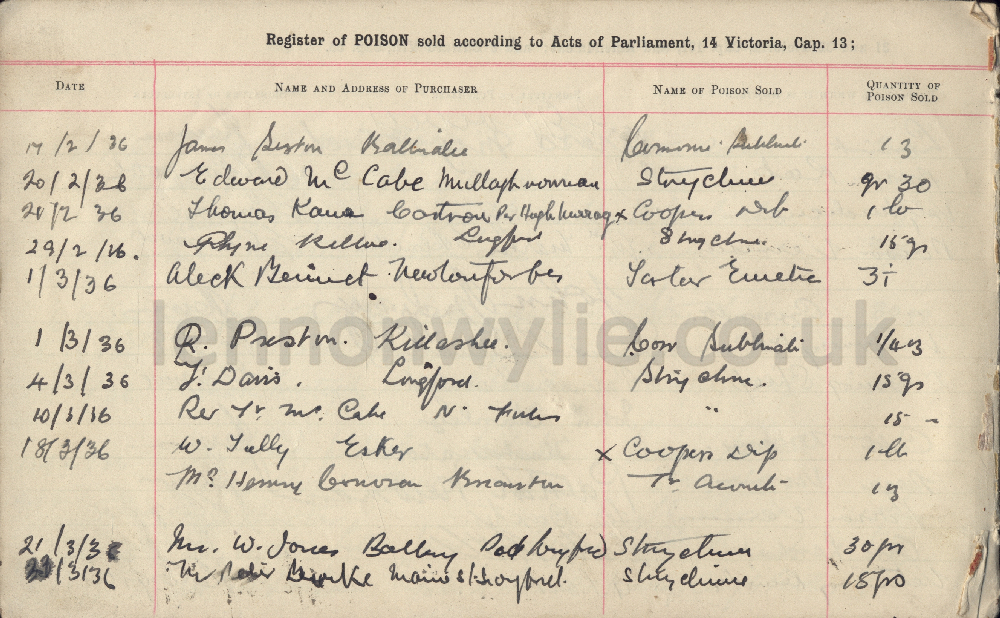 Register of POISON sold according to Acts of Parliament, 14 Victoria, Cap. 13;
DATE NAME AND ADDRESS OF PURCHASER NAME OF POISON SOLD QUANTITY OF POISON SOLD
17/2/36 James
20/2/36 Edward Mc Cabe Strychnine gr 30
2 36 Thomas Kane Per Hugh Murray x Coopers Dip 1 lb
29/2/36. Longford Strychnine. 15 grs
1/3/36 Aleck Bennet Newtonforbes Tartar Emetic
1/3/36 R. Preston. Killashee. Corr Sublimati 1/4 oz
4/3/36 J. Davis. Longford. Strychnine. 15 grs
10/3/36 Rev Fr. Mc. Cabe N. Forbes " 15 -
18/3/36 W. Tully Esker x Coopers Dip 1 lb
Mr Henry Tr Aconiti
21/3/36 Mr. W. Jones Longford Strychnine 30 grs
/3/36 Mr Peter Main St Longford. Strychnine 15 grs
lennonwylie.co.uk